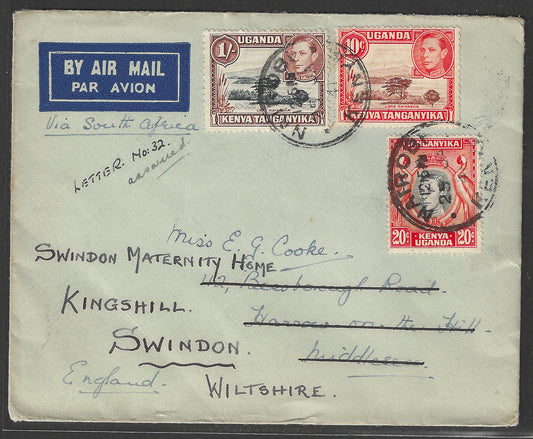 BY AIR MAIL
PAR AVION
UGANDA
1/-
KENYA TANGANYIKA
UGANDA
10c
LAKE NAIVASHA
KENYA TANGANYIKA
NAIROBI
Via South Africa
LETTER No: 32.
answered
TANGANYIKA
20c KENYA- UGANDA 20c
NAIROBI
12 PM
25
Miss E. G. Cooke.
SWINDON MATERNITY HOME
Road.
KINGSHILL.
Harrow on the Hill.
SWINDON.
Middlesex.
England.
WILTSHIRE.